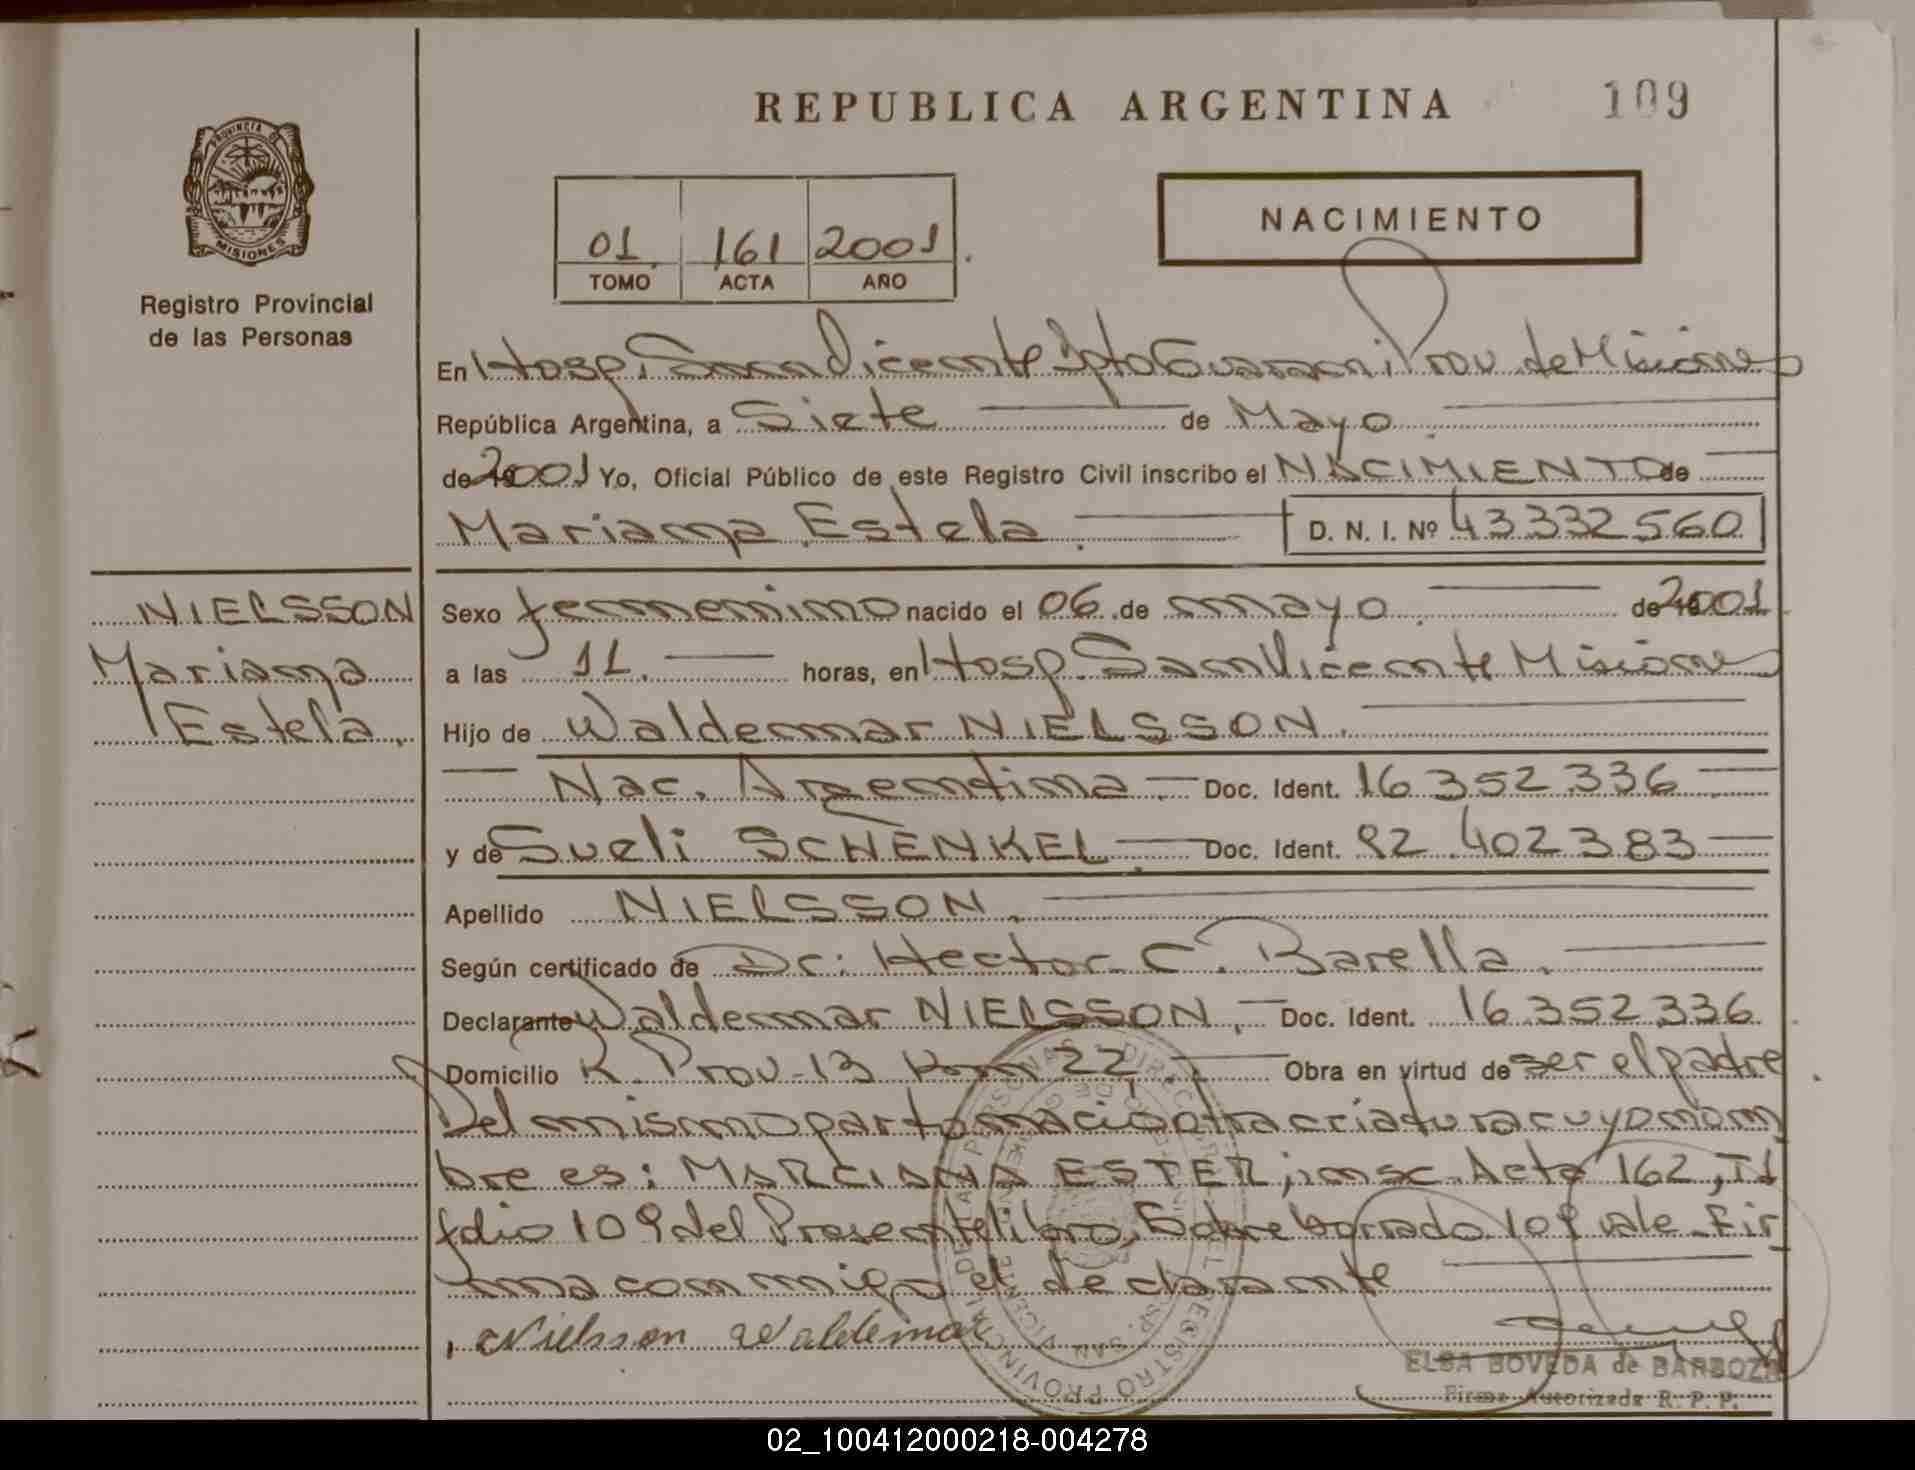 REPUBLICA ARGENTINA
109
PROVINCIA DE
MISIONES
Registro Provincial
de las Personas
01 161 2001
TOMO ACTA AÑO
NACIMIENTO
En Hosp. San Vicente Dpto Guarani Prov. de Misiones
República Argentina, a Siete de Mayo
de 2001 Yo, Oficial Público de este Registro Civil inscribo el NACIMIENTO de
Mariana Estela. D. N. I. Nº 43332560
NIELSSON
Mariana
Estela.
Sexo femenino nacido el 06 de mayo de 2001
a las 11. horas, en Hosp. San Vicente Misiones
Hijo de Waldemar NIELSSON.
Nac. Argentina. Doc. Ident. 16 352 336
y de Sueli SCHENKEL. Doc. Ident. 92 402 383
Apellido NIELSSON.
Según certificado de Dr. Hector C. Barella.
Declarante Waldemar NIELSSON. Doc. Ident. 16 352 336
Domicilio R. Prov. 13 Km 22. Obra en virtud de ser el padre
Del mismo parto nacio otra criatura cuyo nom
bre es: MARCIANA ESTER; insc. Acta 162, T1
folio 109 del Presente libro, Sobre borrado 109 vale_Fir
ma conmigo el declarante
Nielsson Waldemar
ELSA BOVEDA de BARBOZA
Firma Autorizada R. P. P.
02_100412000218-004278